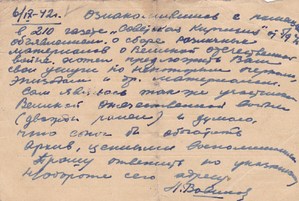 6/IX-72г. Ознакомившись с вашим
в 210 газете "Советская Киргизия" от 5/9
объявлением о сборе
материалов о Великой отечественной
войне, хотел предложить Вам
свои услуги по некоторым
эпизодам и др. материалам.
Сам являюсь тоже участником
Великой отечественной войны
(дважды ранен) и думаю,
что смог бы обогатить
Архив, ценными воспоминаниями
Прошу ответить по указанному
на обороте сего адресу.